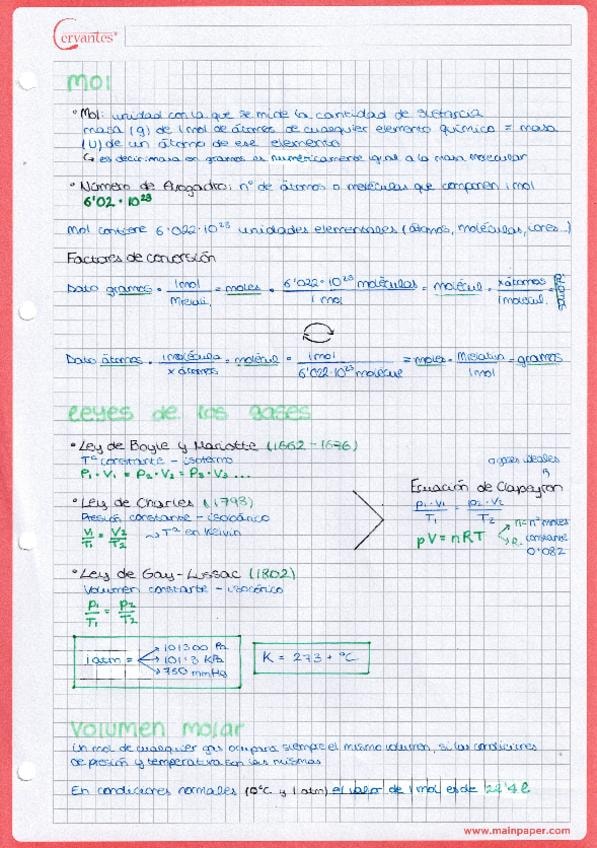 Cervantes®
Mol
• Mol: unidad con la que se mide la cantidad de sustancia
masa (g) de 1 mol de átomos de cualquier elemento químico = masa
(U) de un átomo de ese elemento
↳ es decir: masa en gramos es numéricamente igual a la masa molecular
• Número de Avogadro: nº de átomos o moléculas que componen 1 mol
6'02 · 10²³
Mol contiene 6'022·10²³ unidades elementales (átomos, moléculas, iones...)
Factores de conversión
Dato gramos · 1mol / = moles · 6'022·10²³ moléculas / 1 mol = molécul · x átomos / 1 molécul. = átomos
Dato átomos · 1 molécula / x átomos = molécul · 1mol / 6'022·10²³ molécule = moles · / 1mol = gramos
Leyes de los gases
• Ley de Boyle y Mariotte (1662-1676)
Tª constante - isotermo
P₁·V₁ = P₂·V₂ = P₃·V₃ ...
• Ley de Charles (1798)
Presión constante - isobárico
V₁/T₁ = V₂/T₂ → Tª en Kelvin
• Ley de Gay-Lussac (1802)
Volumen constante - isocórico
P₁/T₁ = P₂/T₂
gases ideales
Ecuación de Clapeyron
P₁·V₁/T₁ = P₂·V₂/T₂
pV = nRT
n = nº moles
constante
0'082
1 atm =
101300 Pa
101'3 KPa
750 mmHg
K = 273 + ºC
Volumen molar
Un mol de cualquier gas ocupara siempre el mismo volumen, si las condiciones
de presión y temperatura son las mismas
En condiciones normales (0ºC y 1 atm) el valor de 1 mol es de 22'4 l
www.mainpaper.com